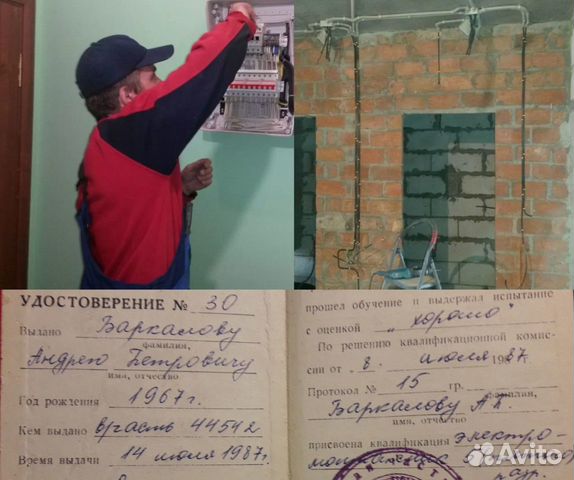 УДОСТОВЕРЕНИЕ № 30
Выдано Баркалову
фамилия,
Андрею Петровичу
имя, отчество
Год рождения 1967г.
Кем выдано в/часть 44542
Время выдачи 14 июля 1987г.
прошел обучение и выдержал испытание
с оценкой "хорошо"
По решению квалификационной комис-
сии от 8 июля 1987г.
Протокол № 15 гр.
фамилия,
Баркалову А.П.
имя, отчество
присвоена квалификация электро-
разр.
Avito